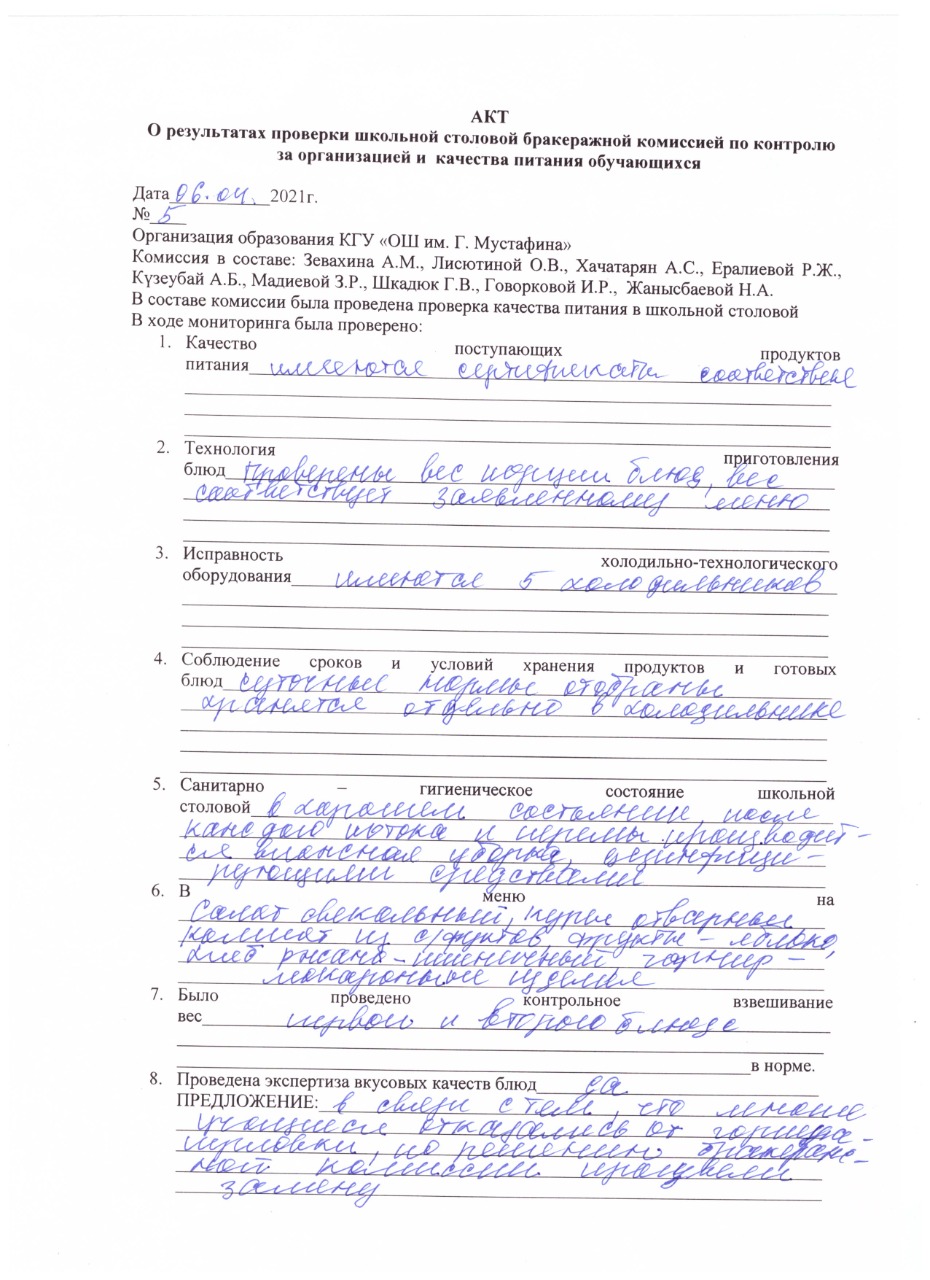 АКТ
О результатах проверки школьной столовой бракеражной комиссией по контролю
за организацией и качества питания обучающихся
Дата 06.04. 2021г.
№ 5
Организация образования КГУ «ОШ им. Г. Мустафина»
Комиссия в составе: Зевахина А.М., Лисютиной О.В., Хачатарян А.С., Ералиевой Р.Ж.,
Күзеубай А.Б., Мадиевой З.Р., Шкадюк Г.В., Говорковой И.Р., Жанысбаевой Н.А.
В составе комиссии была проведена проверка качества питания в школьной столовой
В ходе мониторинга была проверено:
1. Качество поступающих продуктов
питания имеются сертификаты соответствия
2. Технология приготовления
блюд Проверены вес порции блюд, вес
соответствует заявленному меню
3. Исправность холодильно-технологического
оборудования имеются 5 холодильников
4. Соблюдение сроков и условий хранения продуктов и готовых
блюд суточные нормы отобраны
хранятся отдельно в холодильнике
5. Санитарно – гигиеническое состояние школьной
столовой в хорошем состоянии, после
каждого потока и перемы производит-
ся влажная уборка, дезинфици-
рующими средствами
6. В меню на
Салат свекольный, куры отварные
компот из с/фруктов, фрукты – яблоко,
хлеб ржано-пшеничный гарнир –
макаронные изделия
7. Было проведено контрольное взвешивание
вес первого и второго блюда
в норме.
8. Проведена экспертиза вкусовых качеств блюд да
ПРЕДЛОЖЕНИЕ: в связи с тем, что многие
учащиеся отказались от гарнира-
перловки, по решению бракераж-
ной комиссии произвели
замену